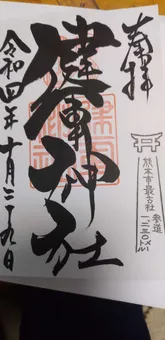 奉拝
参道
熊本市最古社
健軍神社
令和四年十月二十九日